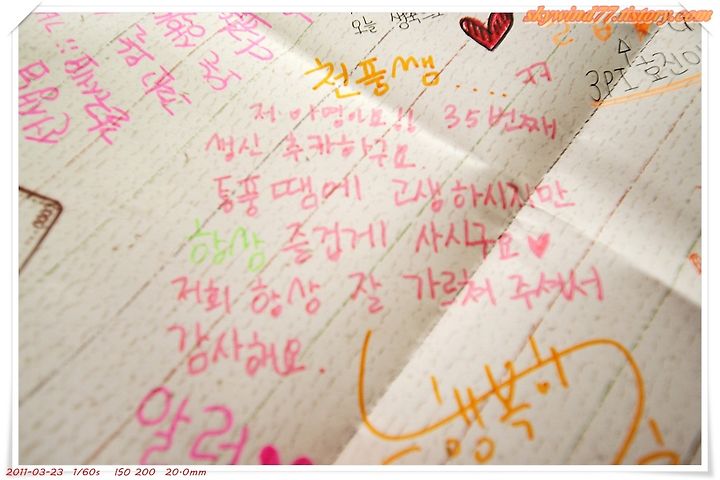 skywind77.tistory.com
천풍쌤 ....
저 아명이요!! 35번째
생신 추카하구요
통풍땜에 고생하시지만
항상 즐겁게 사시구요♥
저희 항상 잘 가르쳐 주셔서
감사해요.
알러
행복하
2011-03-23 1/60s ISO 200 20.0mm